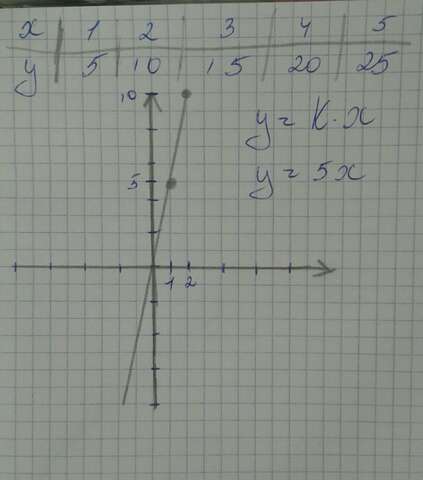 x 1 2 3 4 5
y 5 10 15 20 25
10
y = K · x
5
y = 5x
1 2